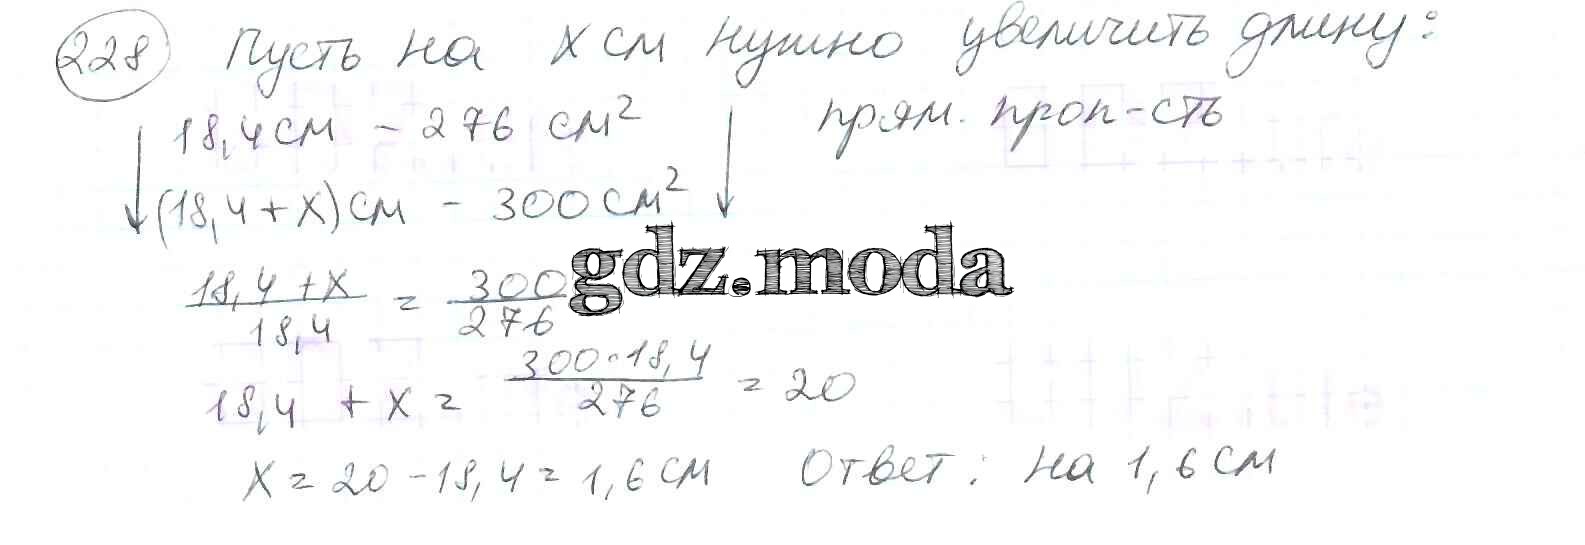 228 Пусть на x см нужно увеличить длину:
18,4 см - 276 см² прям. проп-сть
(18,4 + x) см - 300 см²
gdz.moda
18,4 + x / 18,4 = 300 / 276
18,4 + x = 300 · 18,4 / 276 = 20
x = 20 - 18,4 = 1,6 см Ответ: на 1,6 см